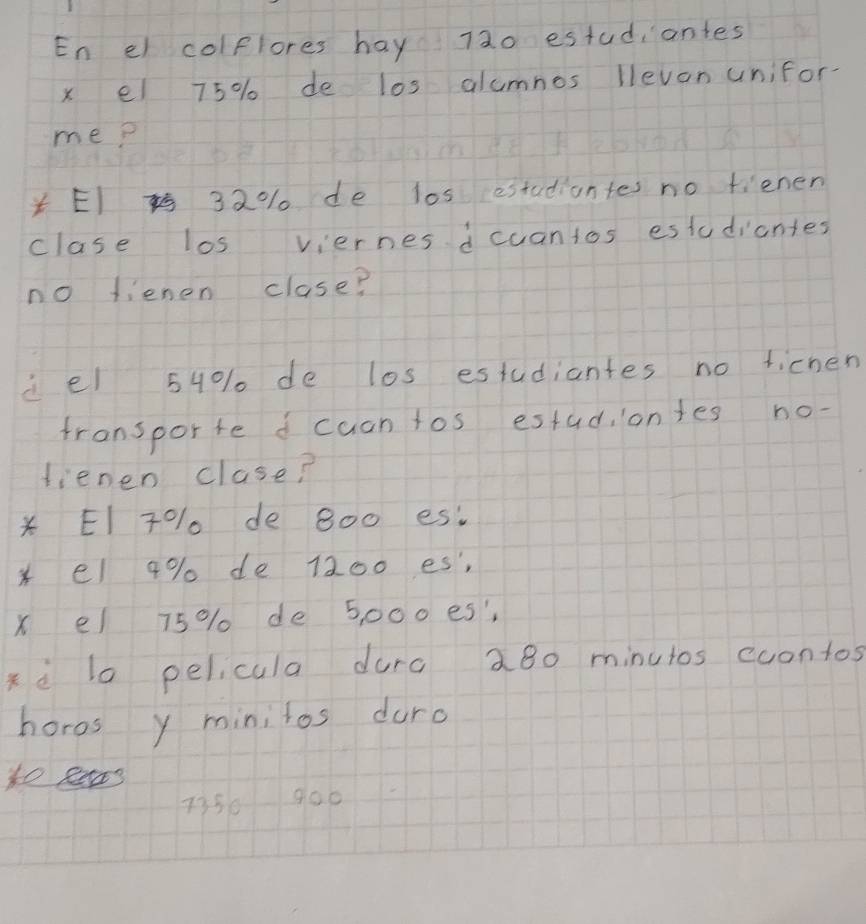 En el colflores hay 720 estudiantes
x el 75% de los alumnos llevan unifor-
me?
* El 32% de los estudiantes no tienen
clase los viernes ¿ cuantos estudiantes
no tienen clase?
¿ el 54% de los estudiantes no tienen
transporte ¿ cuantos estudiantes no-
tienen clase?
* El 7% de 800 es:
* el 9% de 1200 es:
x el 75% de 5,000 es:
* ¿ la pelicula dura 280 minutos cuantos
horas y minitos dura
7350 900